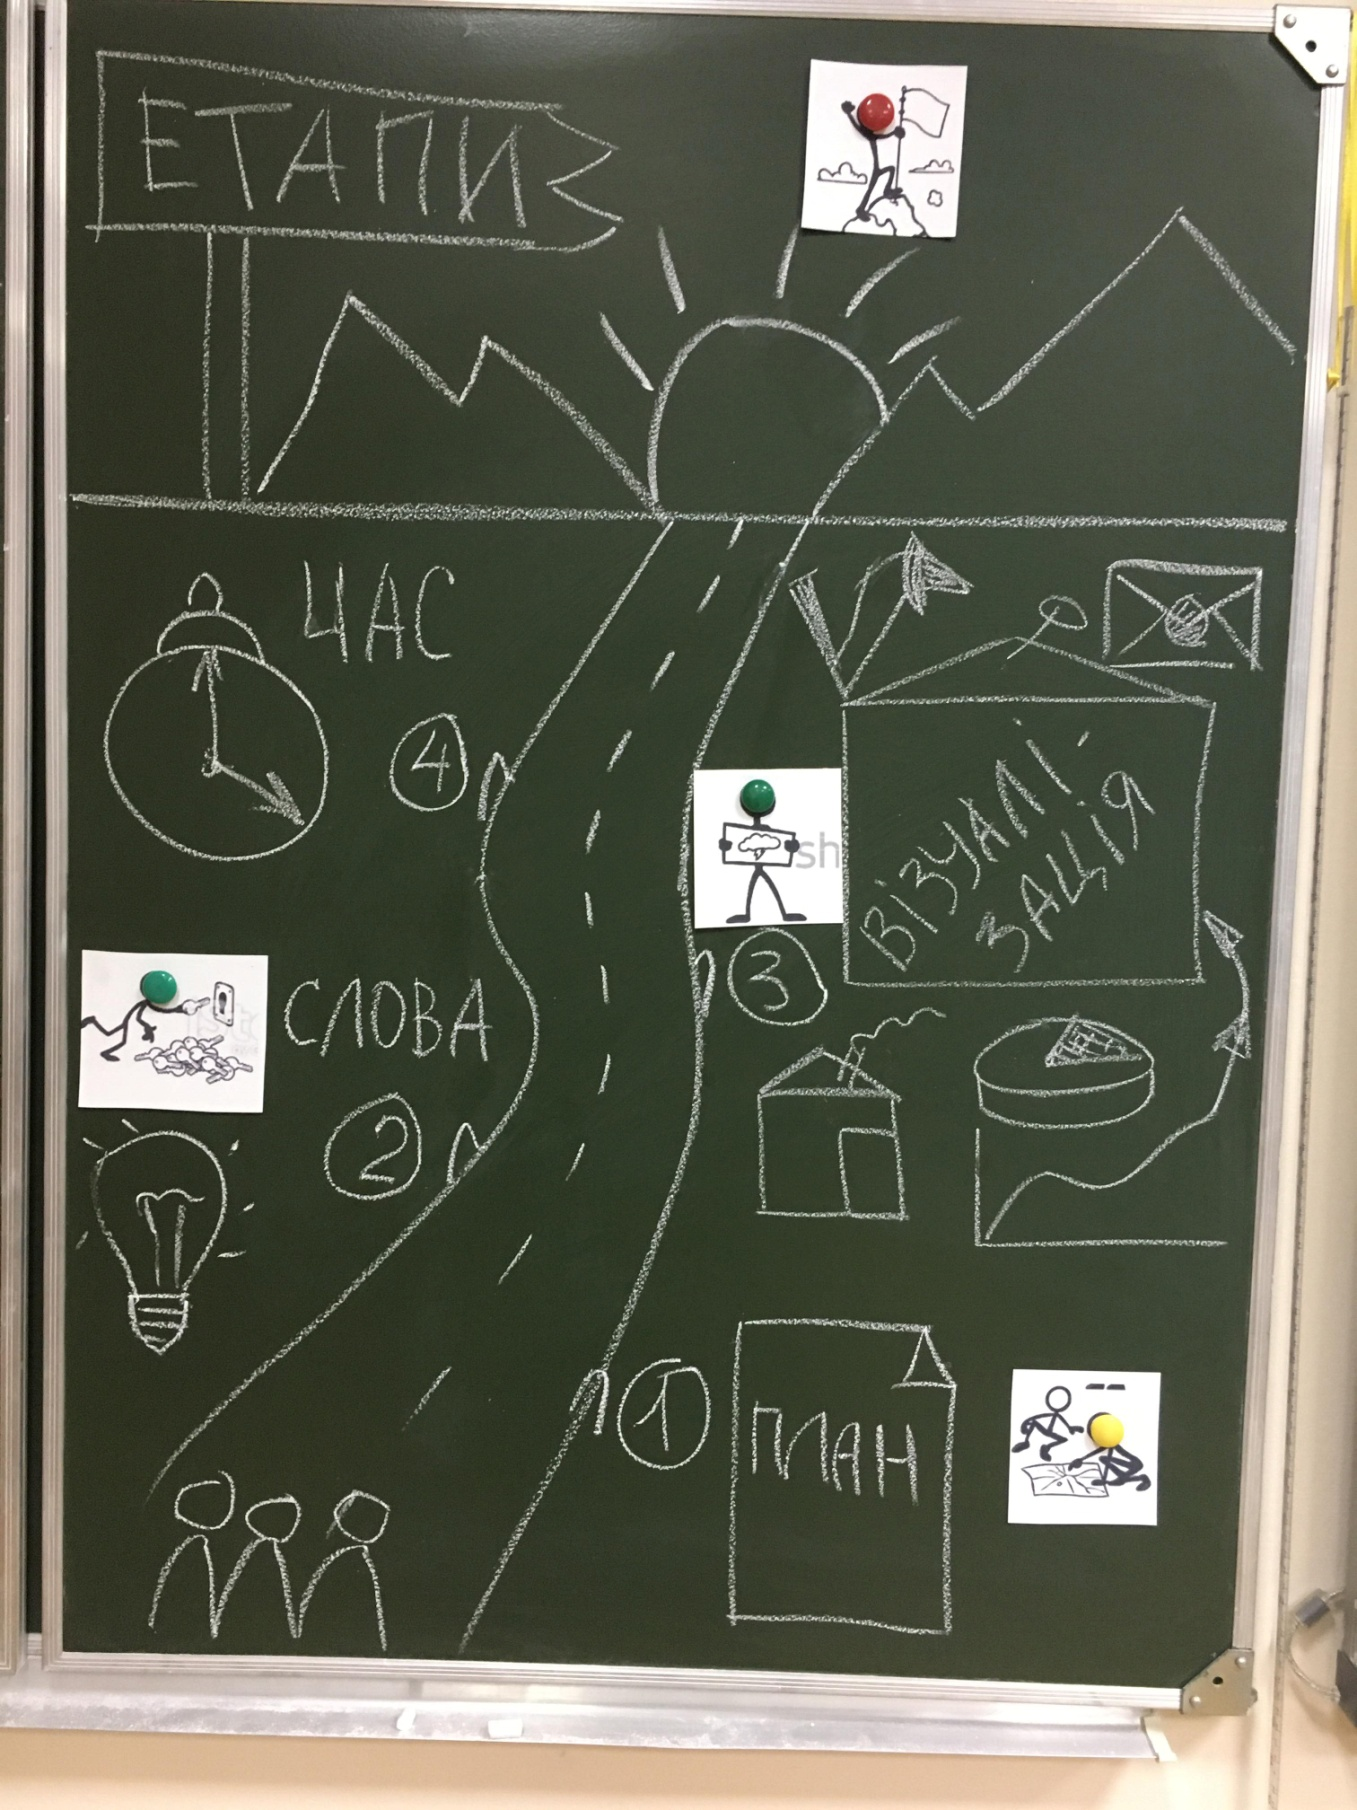 ЕТАПИ
ЧАС
4
ВІЗУАЛІ-
ЗАЦІЯ
sh
3
СЛОВА
2
1
ПЛАН